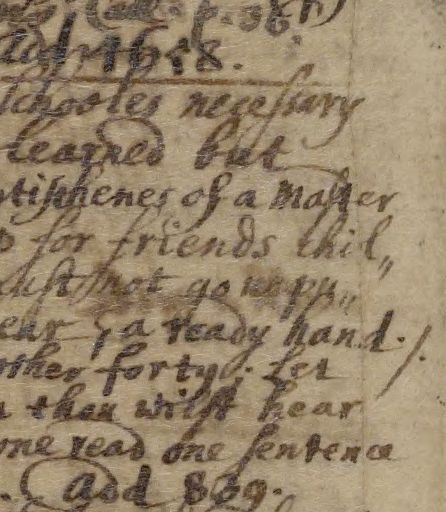 add. 1658.
schooles necessary
learned but
ntisthenes of a master
for friends chil„
must not go unpu„
ear, a ready hand.
other forty. Let
thou wilst hear
one read one sentence
Add 869.